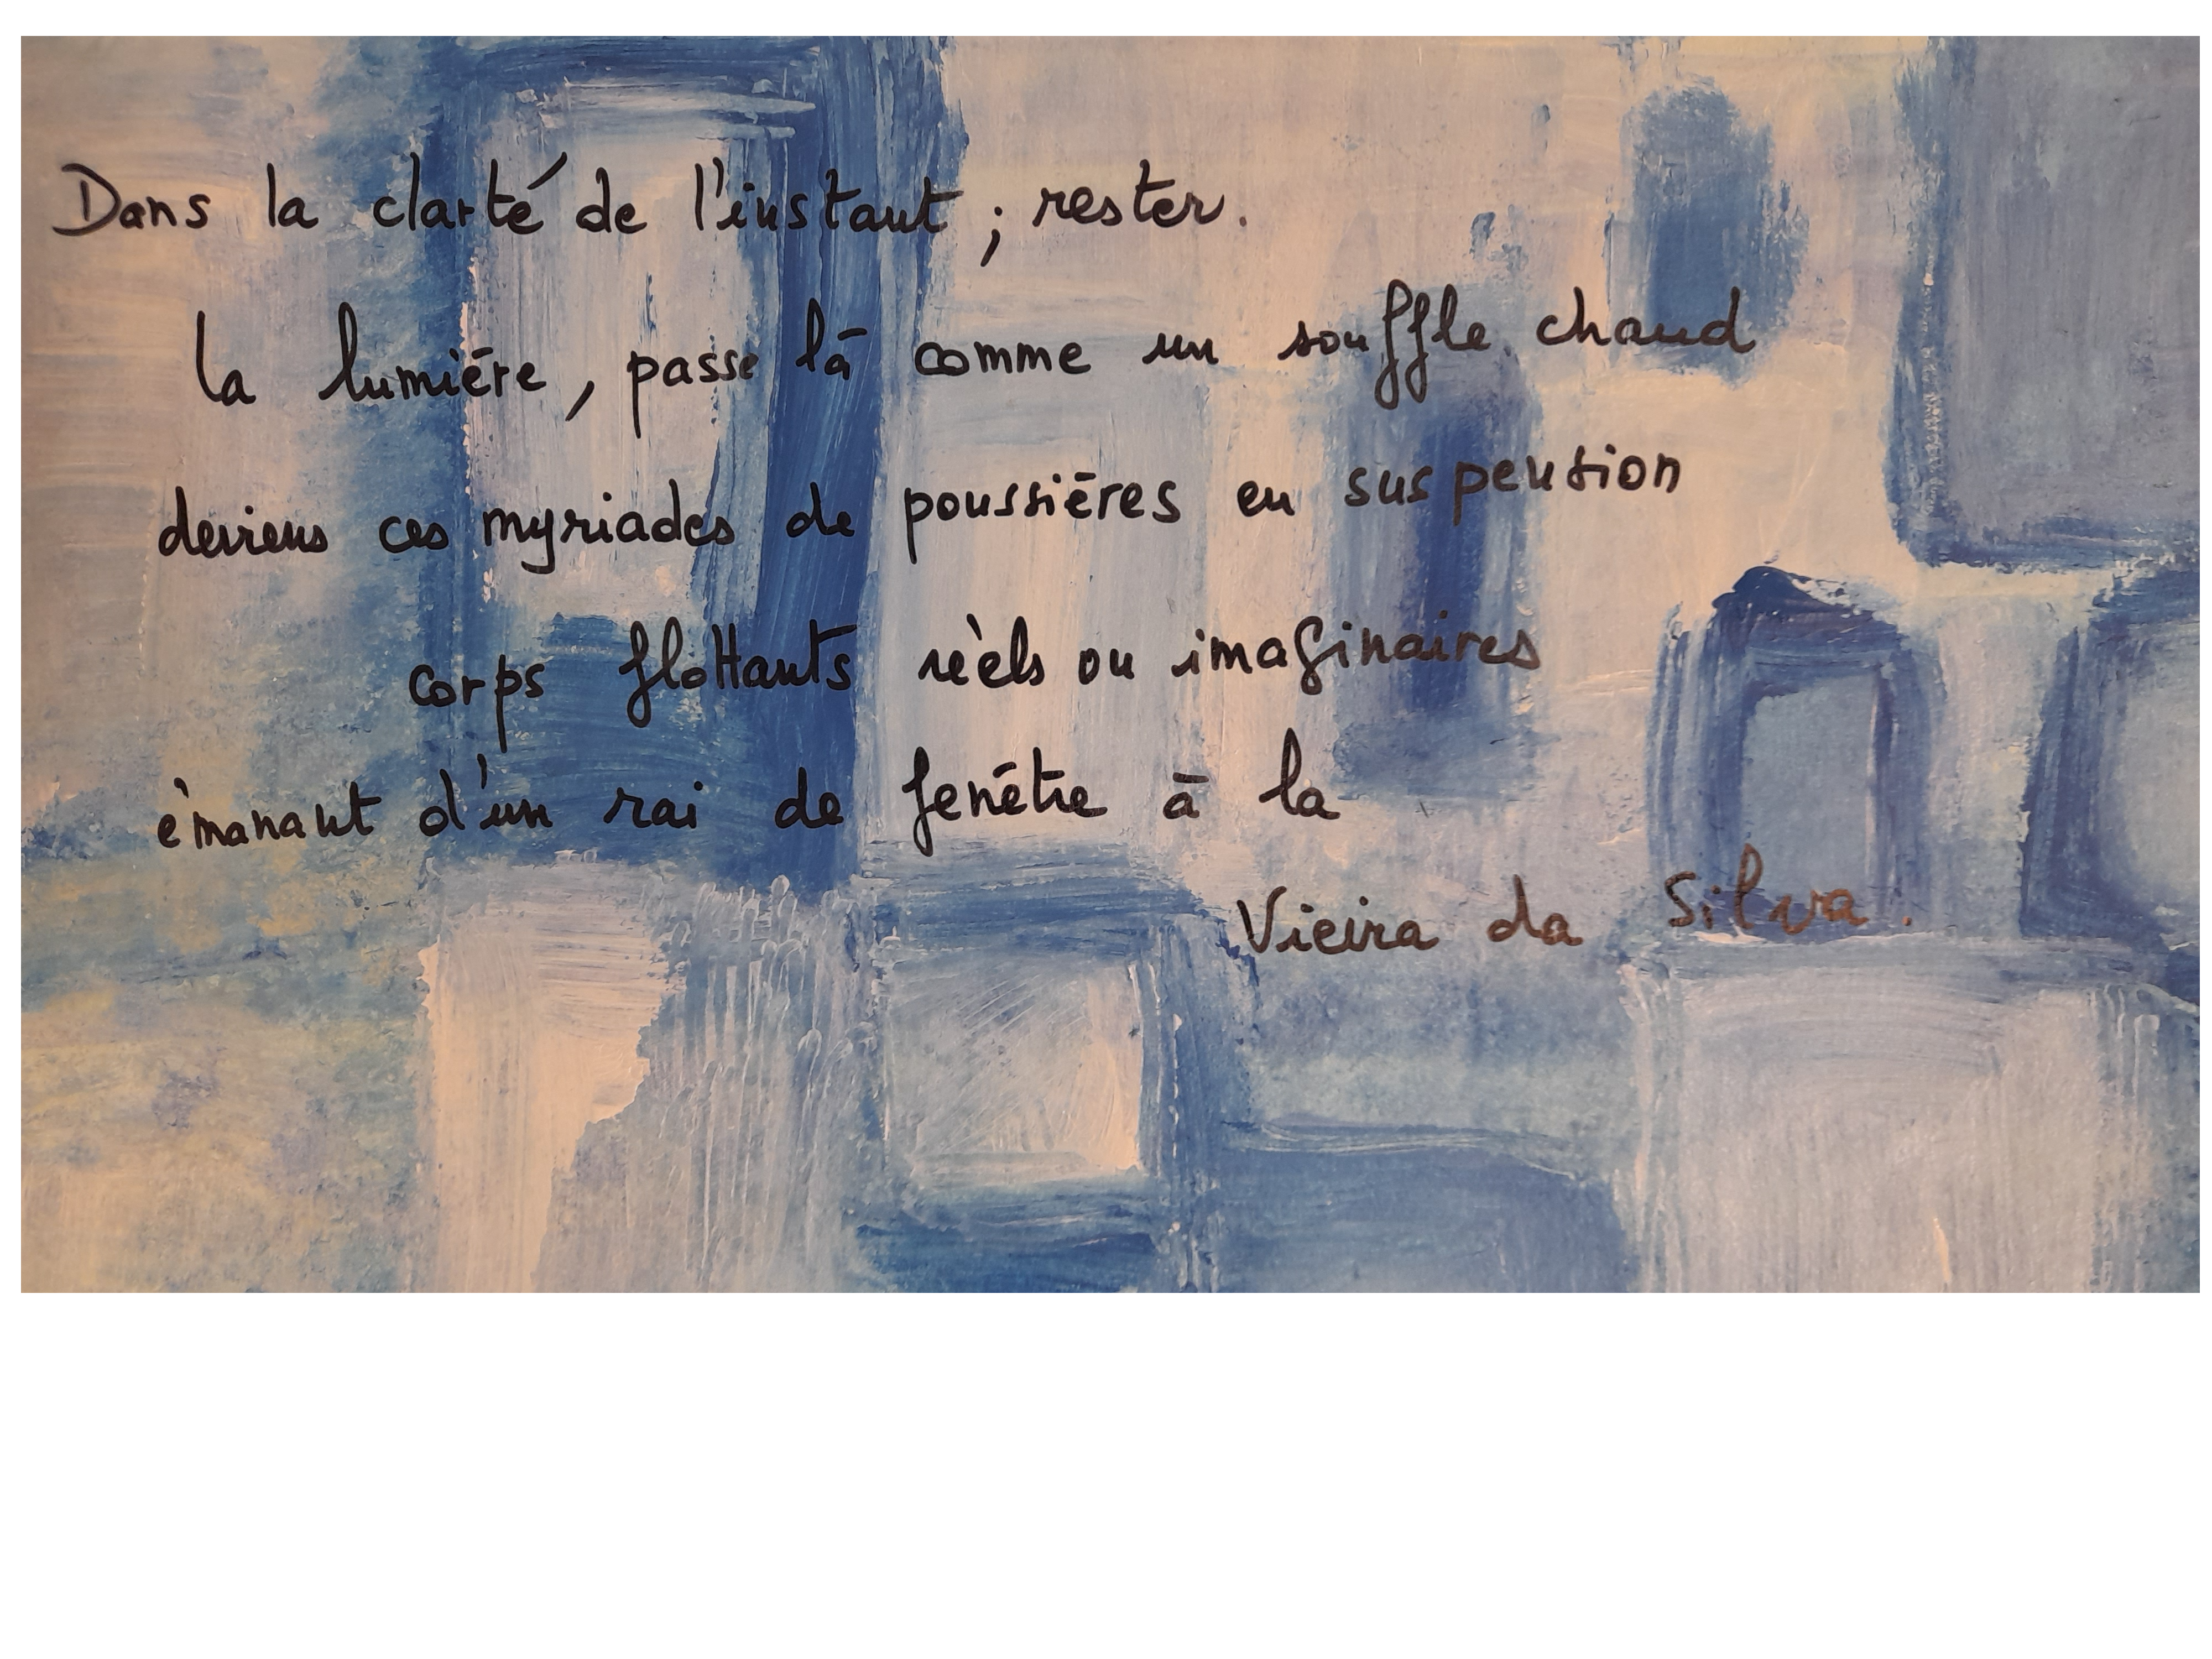 Dans la clarté de l'instant ; rester.
la lumière, passe là comme un souffle chaud
deviens ces myriades de poussières en suspension
corps flottants réels ou imaginaires
émanant d'un rai de fenêtre à la
Vieira da Silva.